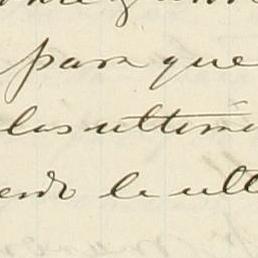 para que
las ultim
endo le ult